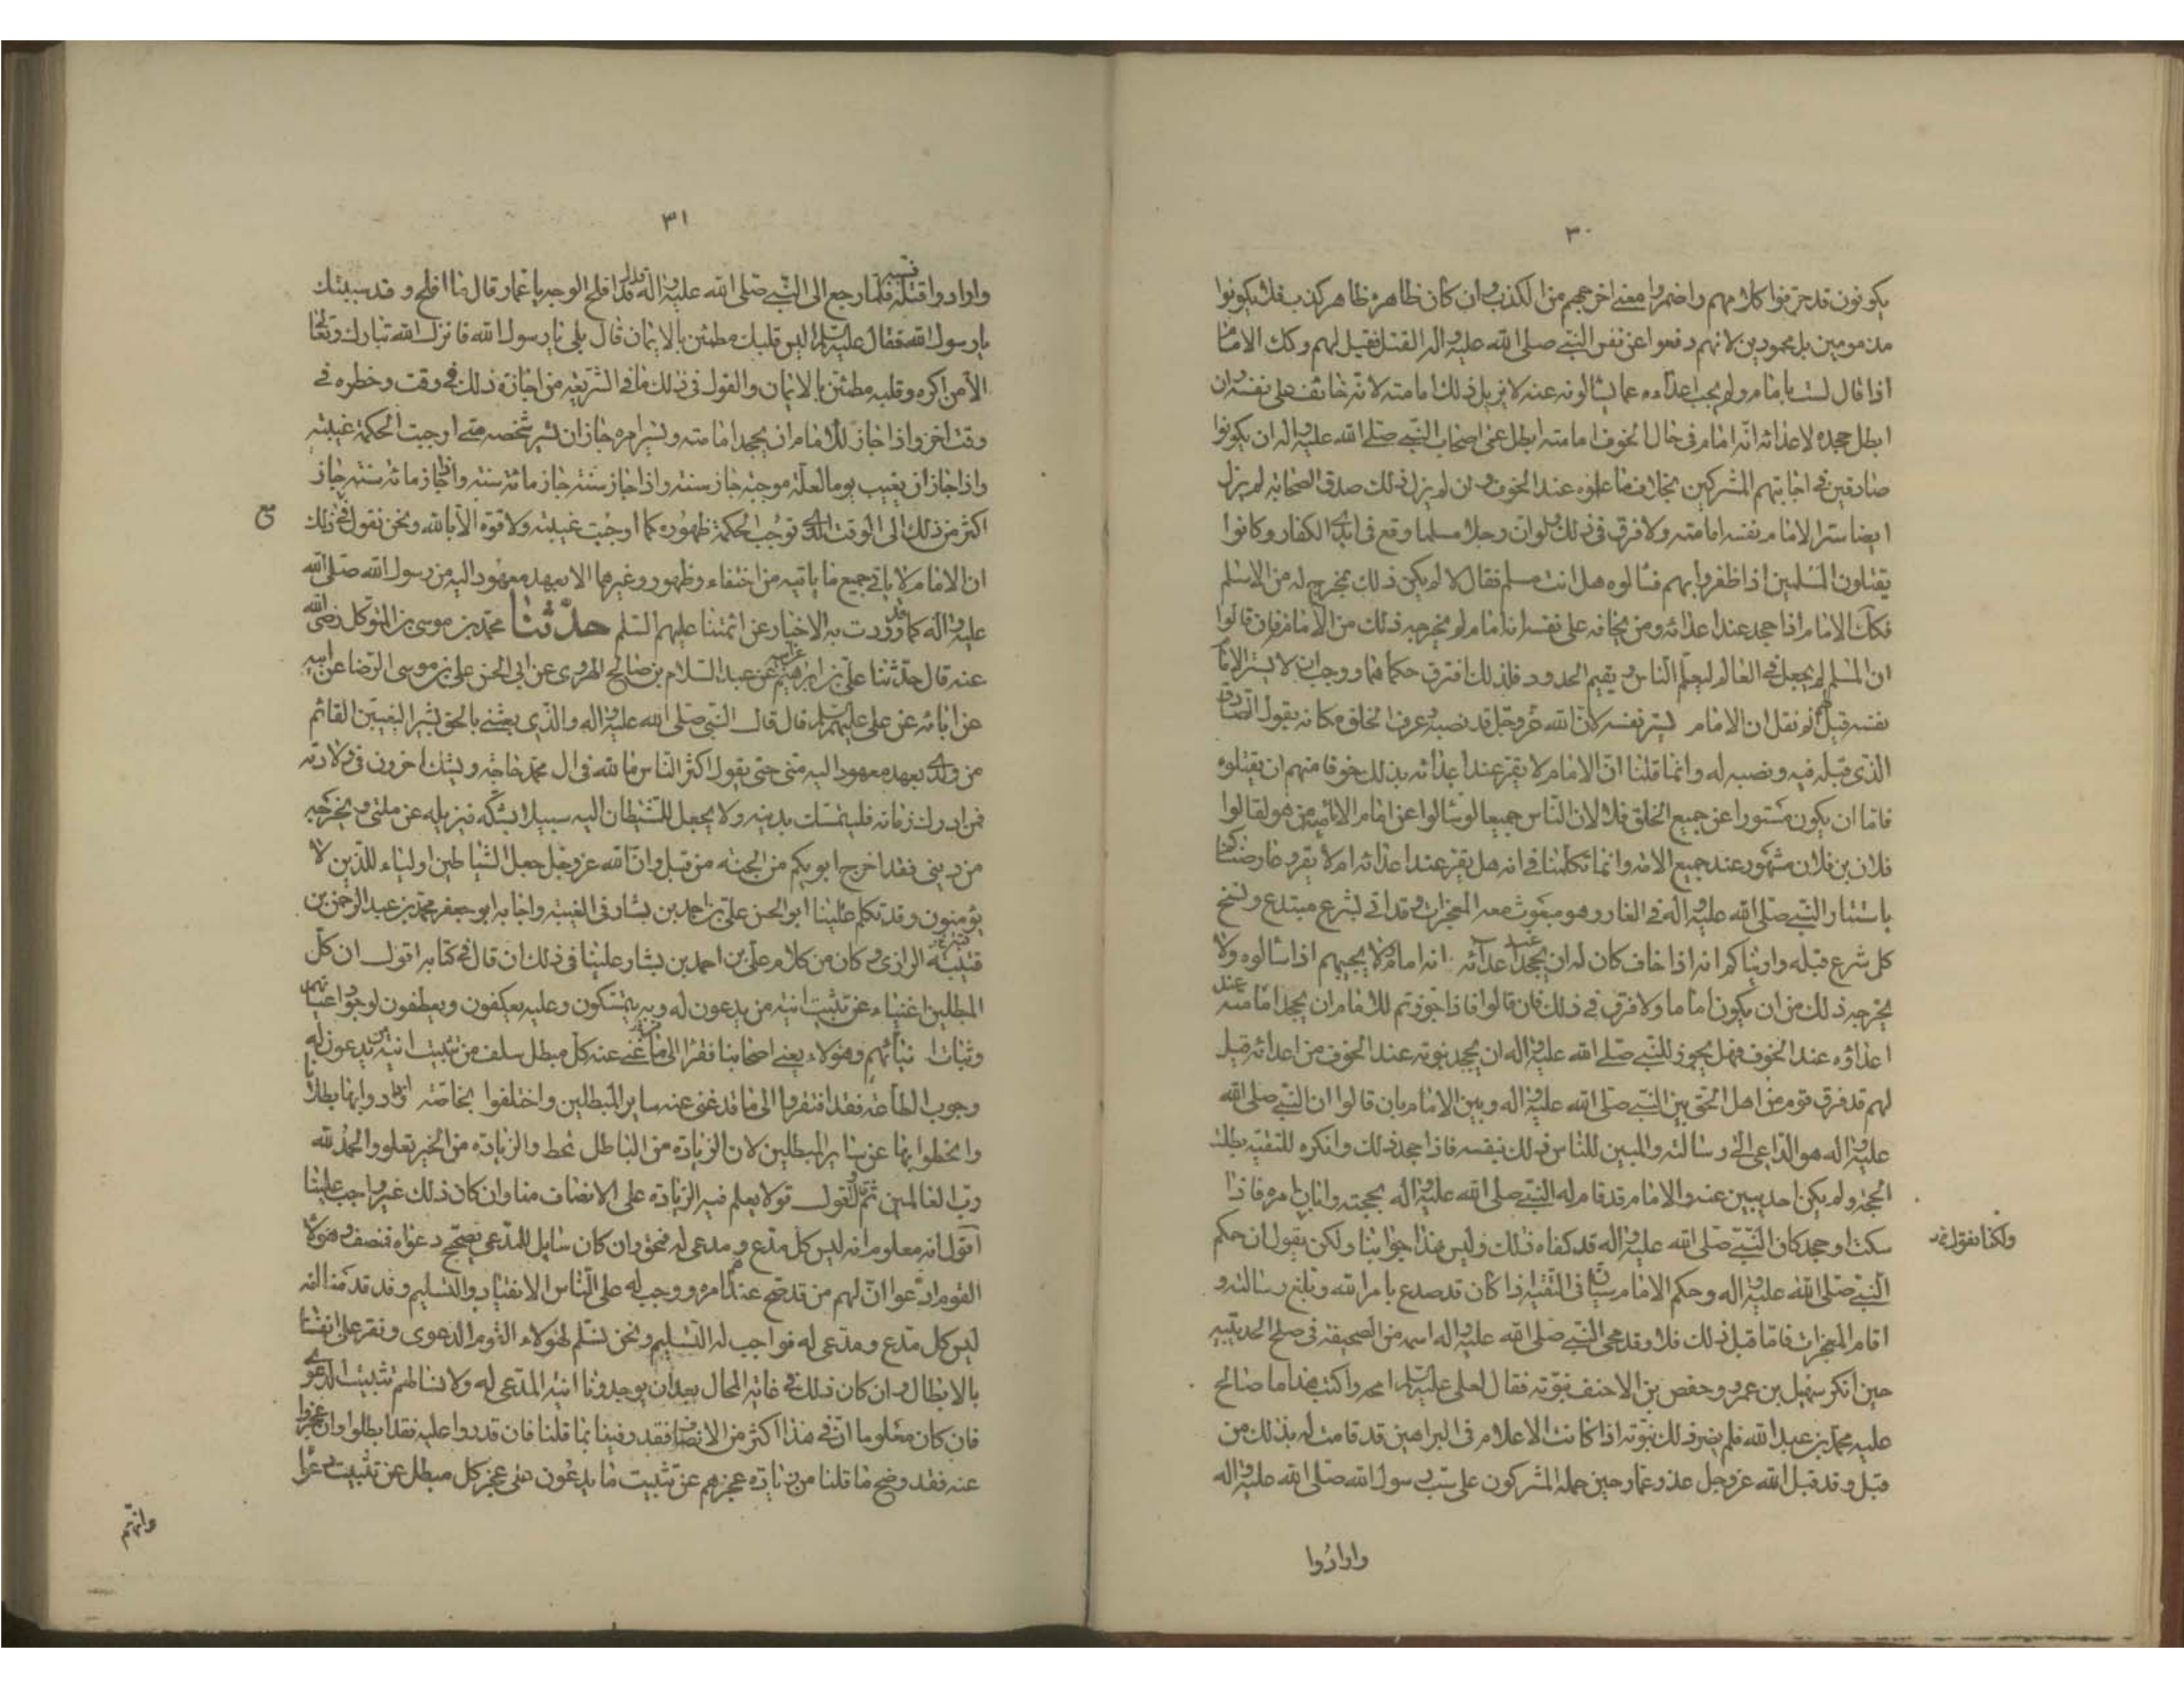 ٣٠
يكونون قد حرفوا كلامهم واضمروا معنى اخرجهم من الكذب وان كان ظاهره ظاهر كذب فلا يكونوا
مذمومين بل محمودين لانهم دفعوا عن نفس النبي صلى الله عليه واله القتل فقيل لهم وكك الامام
اذا قال لست بامام ولم يجب اعداءه عما يسالونه عنه لا يزيل ذلك امامته لانه خائف على نفسه وان
ابطل جحده لاعدائه انه امام في حال الخوف امامته ابطل عن اصحاب النبي صلى الله عليه واله ان يكونوا
صادقين في اجابتهم المشركين بخلاف ما علموه عند الخوف وان لم يزل ذلك صدق الصحابة لم يزل
ايضا ستر الامام نفسه امامته ولا فرق في ذلك ولو ان رجلا مسلما وقع في ايدي الكفار وكانوا
يقتلون المسلمين اذا ظفروا بهم فسالوه هل انت مسلم فقال لا لم يكن ذلك بمخرج له من الاسلم
فكك الامام اذا جحد عند اعدائه ومن يخافه على نفسه انه امام لم يخرجه ذلك من الامامة فان قالوا
ان المسلم لم يجعل في العالم ليعلم الناس ويقيم الحدود فلذلك افترق حكماهما ووجب ان لا يستر الامام
نفسه قيل لهم لم نقل ان الامام يستر نفسه لان الله عز وجل قد نصبه وعرف الخلق مكانه بقول الصادق
الذي قبله فيه ونصبه له وانما قلنا ان الامام لا يقر عند اعدائه بذلك خوفا منهم ان يقتلوه
فاما ان يكون مستورا عن جميع الخلق فلا لان الناس جميعا لو سالوا عن امام الامامية من هو لقالوا
فلان بن فلان مشهور عند جميع الامة وانما تكلمنا في انه هل يقر عند اعدائه ام لا يقر وعارضناكم
باستتار النبي صلى الله عليه واله في الغار وهو مبعوث معه المعجزات وقد اتى بشرع مبتدع ونسخ
كل شرع قبله واريناكم انه اذا خاف كان له ان يجحد عند اعدائه انه امام ولا يجيبهم اذا سالوه ولا
يخرجه ذلك من ان يكون اماما ولا فرق في ذلك فان قالوا فاذا جوزتم للامام ان يجحد امامته عند
اعدائه عند الخوف فهل يجوز للنبي صلى الله عليه واله ان يجحد نبوته عند الخوف من اعدائه قيل
لهم قد فرق قوم من اهل الحق بين النبي صلى الله عليه واله وبين الامام بان قالوا ان النبي صلى الله
عليه واله هو الداعي الى رسالته والمبين للناس ذلك بنفسه فاذا جحد ذلك وانكره للتقية بطلت
الحجة ولم يكن احد يبين عنه والامام قد قام له النبي صلى الله عليه واله بحجته وابان امره فاذا
سكت او جحد كان النبي صلى الله عليه واله قد كفاه ذلك وليس هذا جوابنا ولكن نقول ان حكم
ولكنا نقول خ
النبي صلى الله عليه واله وحكم الامام سيان في التقية اذا كان قد صدع بامر الله وبلغ رسالته و
اقام المعجزات فاما قبل ذلك فلا وقد محى النبي صلى الله عليه واله اسمه من الصحيفة في صلح الحديبية
حين انكر سهيل بن عمرو وحفص بن الاحنف نبوته فقال لعلي عليه السلم امحه واكتب هذا ما صالح
عليه محمد بن عبد الله فلم يضر ذلك نبوته اذا كانت الاعلام في البراهين قد قامت له بذلك من
قبل وقد قبل الله عز وجل عذر عمار حين حمله المشركون على سب رسول الله صلى الله عليه واله
وارادوا
٣١
وارادوا قتله فسبه فلما رجع الى النبي صلى الله عليه واله قال قد افلح الوجه يا عمار قال ما افلح وقد سببتك
يا رسول الله فقال عليه السلم اليس قلبك مطمئن بالايمان قال بلى يا رسول الله فانزل الله تبارك وتعالى
الا من اكره وقلبه مطمئن بالايمان والقول في ذلك ما في الشريعة من اجازة ذلك في وقت وخطره في
وقت اخر واذا جاز للامام ان يجحد امامته ويستر امره جاز ان يستر شخصه متى اوجبت الحكمة غيبته
واذا جاز ان يغيب يوما لعلة موجبة جاز سنة واذا جاز سنة جاز مائة سنة واذا جاز مائة سنة جاز
اكثر من ذلك الى الوقت الذي توجب الحكمة ظهوره كما اوجبت غيبته ولا قوة الا بالله ونحن نقول في ذلك
ان الامام لا ياتي جميع ما ياتيه من اختفاء وظهور وغيرهما الا بعهد معهود اليه من رسول الله صلى الله
عليه واله كما قد وردت به الاخبار عن ائمتنا عليهم السلم حدثنا محمد بن موسى بن المتوكل رضى الله
عنه قال حدثنا علي بن ابرهيم عن ابيه عن عبد السلام بن صالح الهروي عن ابي الحسن علي بن موسى الرضا عن ابيه
عن ابائه عن علي عليهم السلم قال قال النبي صلى الله عليه واله والذي بعثني بالحق بشيرا ليغيبن القائم
من ولدي بعهد معهود اليه مني حتى يقول اكثر الناس ما لله في ال محمد حاجة ويشك اخرون في ولادته
فمن ادرك زمانه فليتمسك بدينه ولا يجعل للشيطان اليه سبيلا بشكه فيزيله عن ملتي ويخرجه
من ديني فقد اخرج ابويكم من الجنة من قبل وان الله عز وجل جعل الشياطين اولياء للذين لا
يؤمنون وقد تكلم علينا ابو الحسن علي بن احمد بن بشار في الغيبة واجابه ابو جعفر محمد بن عبد الرحمن بن
قبة الرازي وكان من كلام علي بن احمد بن بشار علينا في ذلك ان قال في كتابه اقول ان كل
المبطلين اغنياء عن تثبيت انية من يدعون له وبه يتمسكون وعليه يعكفون ويعطفون لوجود اعيانهم
وثبات انياتهم وهؤلاء يعني اصحابنا فقراء الى ما غنى عنه كل مبطل سلف من تثبيت انية من يدعون له
وجوب الطاعة فقد افتقروا الى ما قد غنى عنه ساير المبطلين واختلفوا بخاصة ازدادوا بها بطلانا
وانحطوا بها عن ساير المبطلين لان الزيادة من الباطل تحط والزيادة من الخير تعلو والحمد لله
رب العالمين ثم قال اقول قولا يعلم فيه الزيادة على الانصاف منا وان كان ذلك غير واجب علينا
اقول انه معلوم انه ليس كل مدع ومدعى له فمحق وان كان سايل للمدعي تصحيح دعواه فنصف وهؤلاء
القوم ادعوا ان لهم من قد صح عندهم امره ووجب له على الناس الانقياد والتسليم وقد قدمنا انه
ليس كل مدع ومدعى له فواجب له التسليم ونحن نسلم لهؤلاء القوم الدعوى ونقر على انفسنا
بالابطال وان كان ذلك في غاية المحال بعد ان يوجدونا انية المدعى له ولا نسالهم تثبيت الدعوى
فان كان معلوما ان في هذا اكثر من الانصاف فقد وفينا بما قلنا فان قدروا عليه فقد ابطلوا وان عجزوا
عنه فقد وضح ما قلنا من زيادة عجزهم عن تثبيت ما يدعون على عجز كل مبطل عن تثبيت دعواه
وانهم